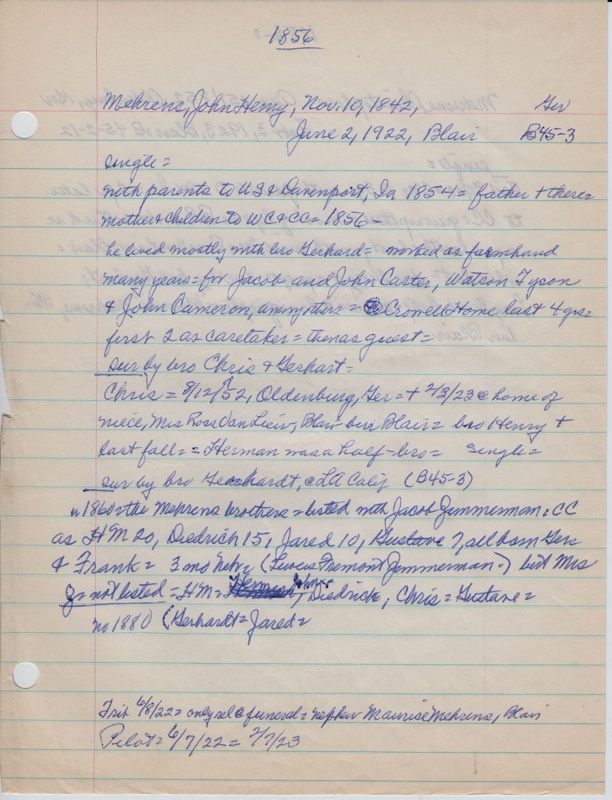 1856
Mehrens, John Henry, Nov. 10, 1842, Ger
June 2, 1922, Blair B45-3
single =
with parents to US & Davenport, Ia 1854 = father + there =
mother & children to WC & CC = 1856 =
he lived mostly with bro Gerhard = worked as farmhand
many years = for Jacob and John Carter, Watson Tyson
& John Cameron, among others = @ Crowell Home last 4 yrs =
first 2 as caretaker = then as guest =
sur by bro Chris & Gerhart =
Chris = 8/12/52, Oldenburg, Ger = + 2/3/23 @ home of
niece, Mrs Ross Blair = bur Blair = bro Henry +
last fall = = Herman was a half-bro = single =
sur by bro Gerhardt, @ LA Calif (B45-3)
1860 = the Mehrens brothers = listed with Jacob Zimmerman, CC
as H M 20, Diedrich 15, Jared 10, Gustave 7, all born Ger
& Frank = 3 mo Nebr, (Lewis Fremont Zimmerman =) but Mrs
Z = not listed = H M = John, Diedrick, Chris = Gustave =
no 1880 (Gerhardt = Jared =
Trib 6/8/22 = only rel @ funeral = nephew Maurice Mehrens, Blair
Pilot = 6/7/22 = 2/7/23